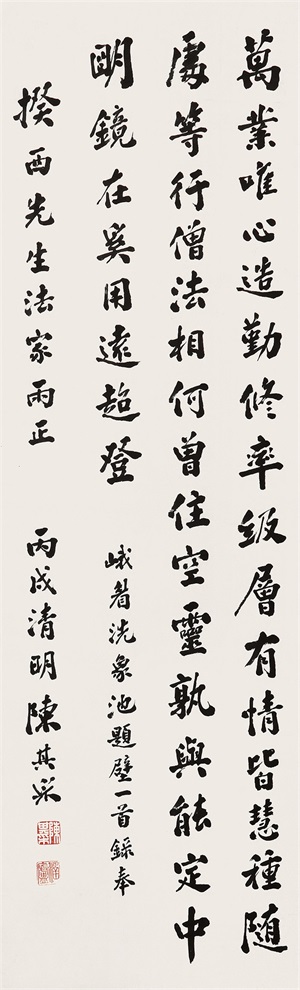 萬業唯心造勤修率級層有情皆慧種隨
處等行僧法相何曾住空靈孰與能定中
明鏡在奚用遠超登
峨眉洗象池題壁一首錄奉
揆西先生法家雨正
丙戌清明陳其采